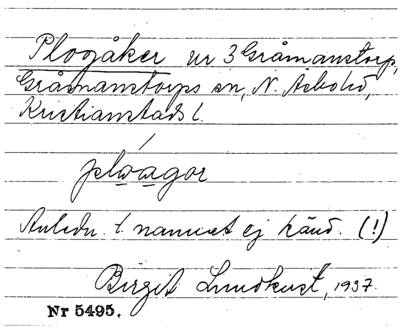 Plogåker nr 3 Gråmanstorp,
Gråmanstorps sn, N. Åsbohd,
Kristianstads l.
plωωgαr
Anledn. t. namnet ej känd. (!)
Birgit Lundkvist, 1937.
Nr 5495.